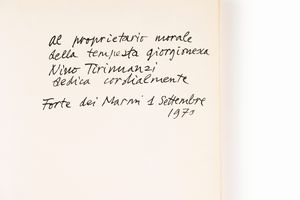 al proprietario morale
della tempesta giorgionesca
Nino Tirinnanzi
dedica cordialmente
Forte dei Marmi 1 Settembre
1971